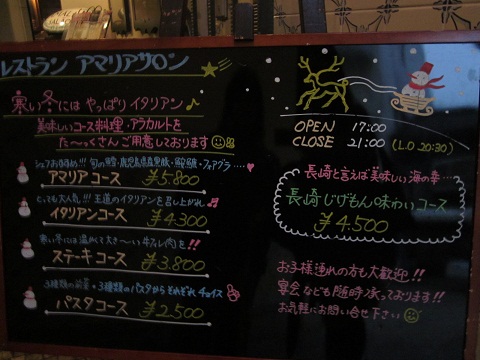 レストラン アマリアサロン
寒い冬には やっぱり イタリアン♪
美味しいコース料理・アラカルトを
た〜っくさん ご用意しております
シェフおすすめ!!! 旬の鱈・鹿児島産黒豚・鮟鱇・フォアグラ……♥
アマリアコース ¥5.800
とっても大人気!!! 王道のイタリアンを召し上がれ♬
イタリアンコース ¥4.300
寒い冬には温かくて大き〜いお肉を!!
ステーキコース ¥3.800
3種類の前菜・3種類のパスタからそれぞれチョイス
パスタコース ¥2.500
OPEN 17:00
CLOSE 21:00 (L.O 20:30)
長崎と言えば美味しい海の幸…
長崎じげもん味わいコース
¥4.500
お子様連れの方も大歓迎!!
宴会なども随時承っております!!
お気軽にお問い合せ下さい